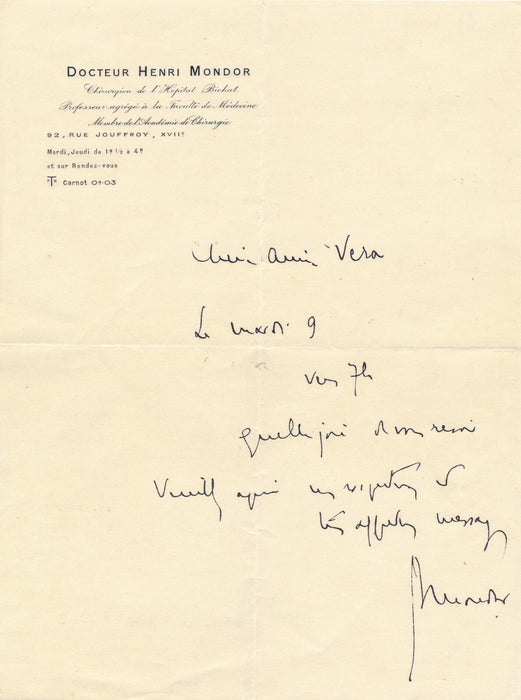 DOCTEUR HENRI MONDOR
Chirurgien de l'Hôpital Bichat
Professeur agrégé à la Faculté de Médecine
Membre de l'Académie de Chirurgie
92, RUE JOUFFROY, XVIIᵉ
Mardi, Jeudi de 1ʰ ½ à 4ʰ
et sur Rendez-vous
Tᴱᴸ Carnot 01-03
ami Vera
Le mardi 9
vers 7h
quelle joie de vous revoir
Veuillez agréer respectueux et
très affectueux messages
Mondor